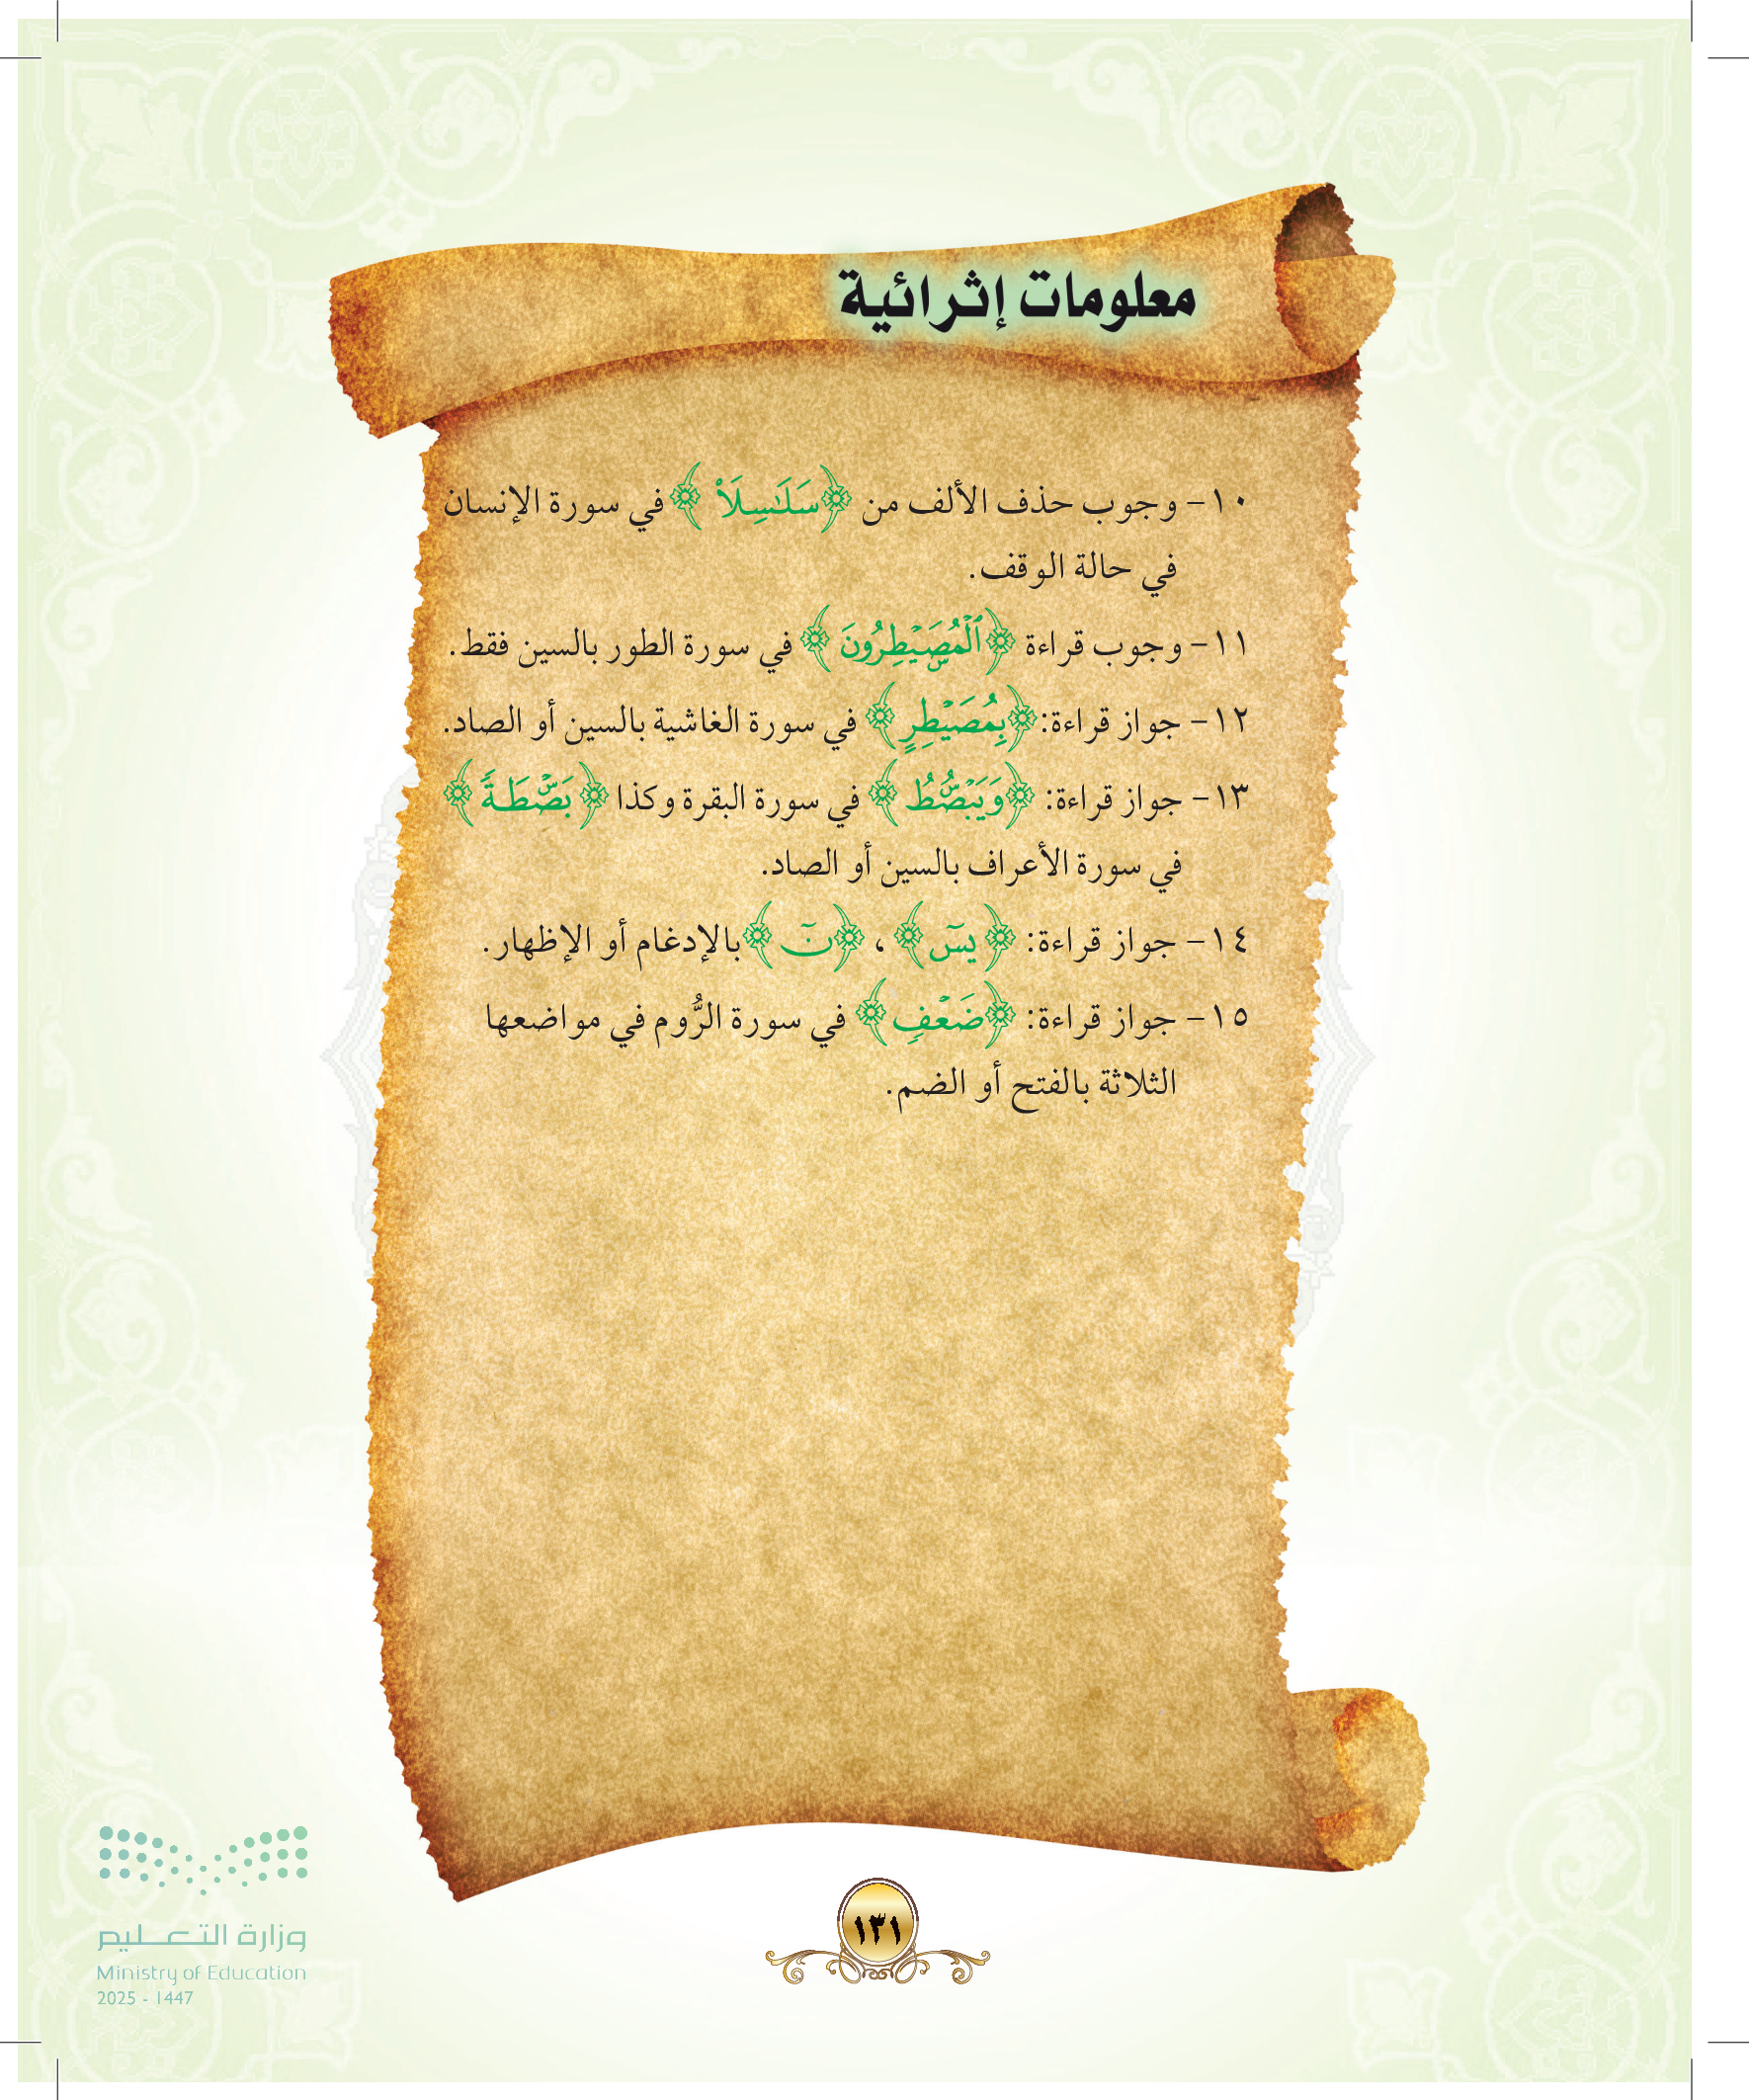 معلومات إثرائية
١٠- وجوب حذف الألف من ﴿سَلَـٰسِلَاْ﴾ في سورة الإنسان
في حالة الوقف.
١١- وجوب قراءة ﴿ٱلْمُصَۜيْطِرُونَ﴾ في سورة الطور بالسين فقط.
١٢- جواز قراءة: ﴿بِمُصَيْطِرٍ﴾ في سورة الغاشية بالسين أو الصاد.
١٣- جواز قراءة: ﴿وَيَبْصُۜطُ﴾ في سورة البقرة وكذا ﴿بَصْۜطَةً﴾
في سورة الأعراف بالسين أو الصاد.
١٤- جواز قراءة: ﴿يسٓ﴾ ، ﴿نٓ﴾ بالإدغام أو الإظهار.
١٥- جواز قراءة: ﴿ضَعْفٍ﴾ في سورة الرُّوم في مواضعها
الثلاثة بالفتح أو الضم.
١٣١
وزارة التعـليم
Ministry of Education
2025 - 1447